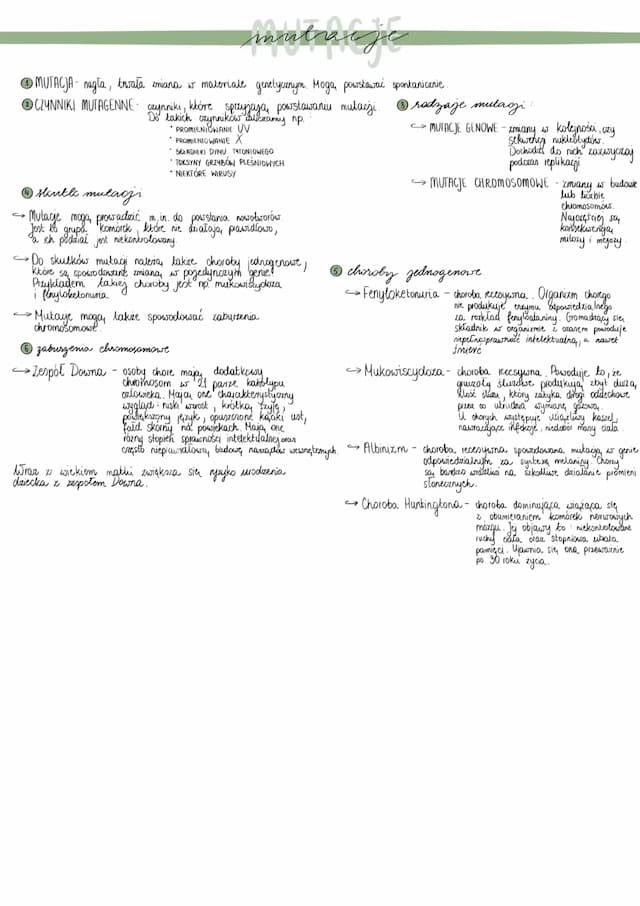 MUTACJE
mutacje
1 MUTACJA - nagła, trwała zmiana w materiale genetycznym. Mogą powstawać spontanicznie.
2 CZYNNIKI MUTAGENNE - czynniki, które sprzyjają powstawaniu mutacji.
Do takich czynników zaliczamy np.:
• PROMIENIOWANIE UV
• PROMIENIOWANIE X
• SKŁADNIKI DYMU TYTONIOWEGO
• TOKSYNY GRZYBÓW PLEŚNIOWYCH
• NIEKTÓRE WIRUSY
3 rodzaje mutacji:
→ MUTACJE GENOWE - zmiany w kolejności, czy
sekwencji nukleotydów.
Dochodzi do nich zazwyczaj
podczas replikacji
→ MUTACJE CHROMOSOMOWE - zmiany w budowie
lub liczbie
chromosomów.
Najczęściej są
konsekwencją
mitozy i mejozy.
4 skutki mutacji
→ Mutacje mogą prowadzić m.in. do powstania nowotworów
Jest to grupa komórek, które nie działają prawidłowo,
a ich podział jest niekontrolowany.
→ Do skutków mutacji należą także choroby jednogenowe,
które są spowodowane zmianą w pojedynczym genie.
Przykładem takiej choroby jest np. mukowiscydoza
i fenyloketonuria.
→ Mutacje mogą także spowodować zaburzenia
chromosomowe.
5 choroby jednogenowe
→ Fenyloketonuria - choroba recesywna. Organizm chorego
nie produkuje enzymu odpowiedzialnego
za rozkład fenyloalaniny. Gromadzący się
składnik w organizmie z czasem powoduje
niepełnosprawność intelektualną, a nawet
śmierć
→ Mukowiscydoza - choroba recesywna. Powoduje to, że
gruczoły śluzowe produkują zbyt dużą
ilość śluzu, który zatyka drogi oddechowe
przez co utrudnia wymianę gazową.
U chorych występuje uciążliwy kaszel,
nawracające infekcje, niedobór masy ciała.
→ Albinizm - choroba recesywna spowodowana mutacją w genie
odpowiedzialnym za syntezę melaniny. Chorzy
są bardzo wrażliwi na szkodliwe działanie promieni
słonecznych.
→ Choroba Huntingtona - choroba dominująca wiążąca się
z obumieraniem komórek nerwowych
mózgu. Jej objawy to: niekontrolowane
ruchy ciała oraz stopniowa utrata
pamięci. Ujawnia się ona przeważnie
po 30 roku życia.
6 zaburzenia chromosomowe
→ Zespół Downa - osoby chore mają dodatkowy
chromosom w 21 parze kariotypu
człowieka. Mają one charakterystyczny
wygląd: niski wzrost, krótką szyję,
powiększony język, opuszczone kąciki ust,
fałd skórny na powiekach. Mają one
różny stopień sprawności intelektualnej oraz
często nieprawidłową budowę narządów wewnętrznych.
Wraz z wiekiem matki zwiększa się ryzyko urodzenia
dziecka z zespołem Downa.